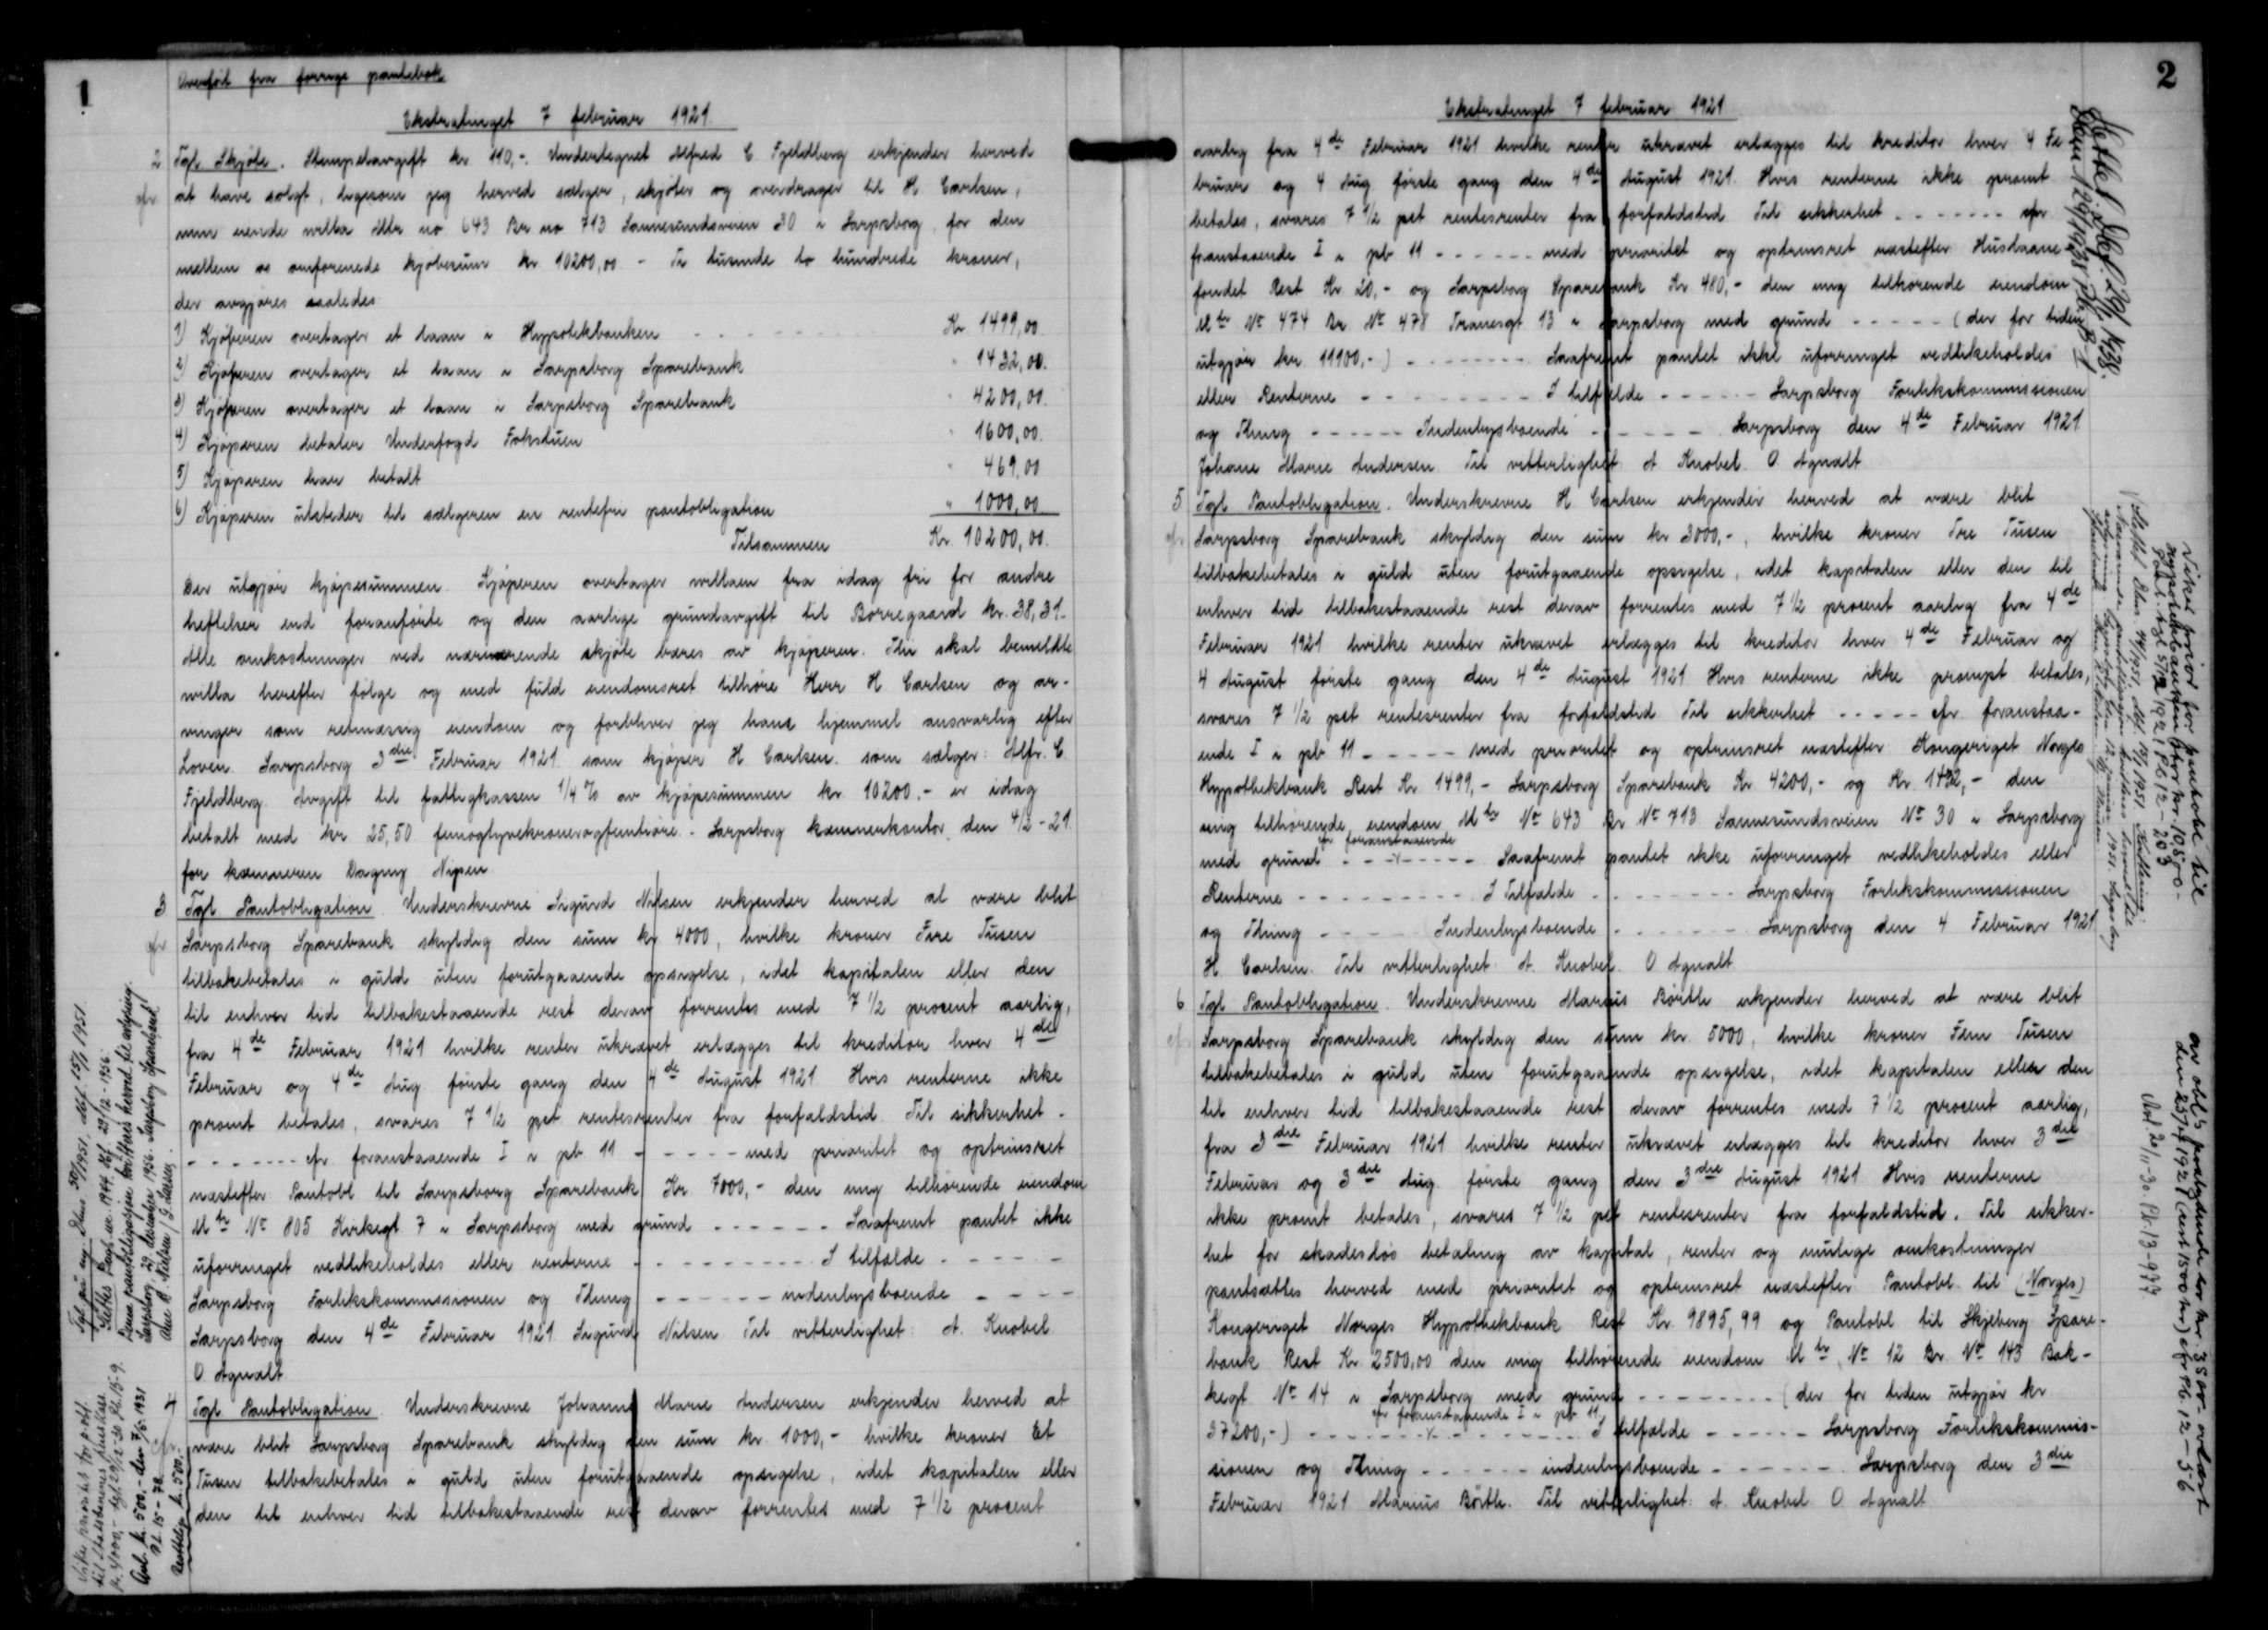 1
Overført fra forrige pantebok
Ekstratinget 7 februar 1921.
2 Tgl. Skjøte. Stempelavgift kr 110,-. Undertegnet Alfred C Fjeldberg erkjender herved
cfr at have solgt, ligesom jeg herved sælger, skjøter og overdrager til H Carlsen,
min eiende villa Mtr no 643 Br no 713 Sannesundsveien 30 i Sarpsborg for den
mellem os omforenede kjøbesum kr 10200,00 - Ti tusinde to hundrede kroner,
der avgjøres saaledes
1) Kjøperen overtager et laan i Hypotekbanken - - - Kr 1499,00
2) Kjøperen overtager et laan i Sarpsborg Sparebank " 1432,00.
3) Kjøperen overtager et laan i Sarpsborg Sparebank " 4200,00.
4) Kjøperen betaler Underfogd Fokstuen " 1600,00.
5) Kjøperen har betalt " 469,00
6) Kjøperen utsteder til sælgeren en rentefri pantobligation " 1000,00
Tilsammen Kr. 10200,00.
Der utgjør kjøpesummen. Kjøperen overtager villaen fra idag fri for andre
heftelser end foranførte og den aarlige grundavgift til Borregaard kr. 38,31.
Alle omkostninger ved nærværende skjøte bæres av kjøperen. Thi skal bemeldte
villa herefter følge og med fuld eiendomsret tilhøre Herr H Carlsen og ar-
vinger som retmæssig eiendom og forbliver jeg hans hjemmel ansvarlig efter
Loven. Sarpsborg 3dre Februar 1921 som kjøper H Carlsen. som sælger: Alfr. C.
Fjeldberg. Avgift til fattigkassen 1/4 % av kjøpesummen kr. 10200.- er idag
betalt med kr 25,50 femogtyvekronerogfemtiøre. - Sarpsborg kæmnerkontor den 4/2-21.
for kæmneren Dagny Nipen
3 Tgl Pantobligation Underskrevne Sigurd Nilsen erkjender herved at være blit
cfr Sarpsborg Sparebank skyldig den sum kr 4000, hvilke kroner Fire Tusen
tilbakebetales i guld uten forutgaaende opsigelse, idet kapitalen eller den
til enhver tid tilbakestaaende rest derav forrentes med 7 1/2 prosent aarlig,
fra 4de Februar 1921 hvilke renter ukrævet erlægges til kreditor hver 4de
Februar og 4de Aug. første gang den 4de August 1921. Hvis renterne ikke
promt betales, svares 7 1/2 pct rentesrenter fra forfaldstid. Til sikkerhet -
- - - - - - - cfr foranstaaende I i pb 11 - - - - - med prioritet og optrinsret
næstefter Pantobl til Sarpsborg Sparebank Kr. 7000,- den mig tilhørende eiendom
Mtr No 805 Kirkegt 7 i Sarpsborg med grund - - - - - - Saafremt pantet ikke
uforringet vedlikeholdes eller renterne - - - - - - - - I tilfælde - - - - -
Sarpsborg Forlikskommissionen og Thing - - - - - - indenbysboende - - - -
Sarpsborg den 4de Februar 1921 Sigurd Nilsen Til vitterlighet: A. Knobel
O Agnalt
4 Tgl Pantobligation. Underskrevne Johanne Marie Andersen erkjender herved at
cfr. være blit Sarpsborg Sparebank skyldig den sum kr. 1000,- hvilke kroner Et
Tusen tilbakebetales i guld uten forutgaaende opsigelse, idet kapitalen eller
den til enhver tid tilbakestaaende rest derav forrentes med 7 1/2 prosent
Tgl på ny. Dnr. 50/1951, dbf. 15/1 1951.
Slettes
Denne pantobligasjon kvitteres herved til avlysning.
Sarpsborg, 29. desember 1956. Sarpsborg Sparebank
Viker prioritet for p. obl.
til Statsbanenes
kr. 4000,- tgl. 29/12-30 Pb. 15-9.
Avl. kr. 500,- den 7/5-1931
Pb. 15-78
Restbeløp kr. 500.-
2
Ekstratinget 7 februar 1921
aarlig fra 4de Februar 1921 hvilke renter ukrævet erlægges til kreditor hver 4 Fe-
bruar og 4 Aug. første gang den 4de August 1921. Hvis renterne ikke promt
betales, svares 7 1/2 pct rentesrenter fra forfaldstid Til sikkerhet - - - - - - - cfr
foranstaaende I i pb 11 - - - - - - med prioritet og optrinsret næstefter Huslaane-
fondet Rest Kr 20,- og Sarpsborg Sparebank Kr 480,- den mig tilhørende eiendom
Mtr No 474 Br. No 478 Tranesgt 13 i Sarpsborg med grund - - - - - (der for tiden
utgjør kr. 11100,-) - - - - - - - - Saafremt pantet ikke uforringet vedlikeholdes
eller Renterne - - - - - - - - - I tilfælde - - - - - Sarpsborg Forlikskommissionen
og Thing - - - - - - Indenbysboende - - - - - - Sarpsborg den 4de Februar 1921
Johane Marie Andersen. Til vitterlighet A Knobel. O Agnalt
5 Tgl Pantobligation. Underskrevne H Carlsen erkjender herved at være blit
cfr Sarpsborg Sparebank skyldig den sum kr 3000,-, hvilke kroner Tre Tusen
tilbakebetales i guld uten forutgaaende opsigelse, idet kapitalen eller den til
enhver tid tilbakestaaende rest derav forrentes med 7 1/2 prosent aarlig fra 4de
Februar 1921 hvilke renter ukrævet erlægges til kreditor hver 4de Februar og
4 August første gang den 4de August 1921 Hvis renterne ikke prompt betales,
svares 7 1/2 pct rentesrenter fra forfaldstid Til sikkerhet - - - - - cfr. foranstaa-
ende I i pb 11 - - - - - med prioritet og optrinsret næstefter Kongeriget Norges
Hypothekbank Rest Kr. 1499,- Sarpsborg Sparebank Kr 4200,- og Kr. 1432,- den
mig tilhørende eiendom Mtr No 643 Br No 713 Sannesundsveien No 30 i Sarpsborg
cfr foranstaaende
med grund - - -x- - - - - Saafremt pantet ikke uforringet vedlikeholdes eller
Renterne - - - - - - - - - I Tilfælde - - - - - - - Sarpsborg Forlikskommissionen
og Thing - - - - - Indenbysboende - - - - - - - Sarpsborg den 4 Februar 1921
H. Carlsen. Til vitterlighet. A. Knobel. O Agnalt
6 Tgl Pantobligation. Underskrevne Marius Börtli erkjender herved at være blit
cfr Sarpsborg Sparebank skyldig den sum kr. 5000, hvilke kroner Fem Tusen
tilbakebetales i guld uten forutgaaende opsigelse, idet kapitalen eller den
til enhver tid tilbakestaaende rest derav forrentes med 7 1/2 prosent aarlig,
fra 3dre Februar 1921 hvilke renter ukrævet erlægges til kreditor hver 3dre
Februar og 3dre Aug. første gang den 3dre August 1921 Hvis renterne
ikke promt betales, svares 7 1/2 pct rentesrenter fra forfaldstid. Til sikker-
het for skadesløs betaling av kapital, renter og mulige omkostninger
pantsættes herved med prioritet og optrinsret næstefter Pantobl. til (Norges)
Kongeriget Norges Hypothekbank Rest Kr. 9895,99 og Pantobl til Skjeberg Spare-
bank Rest Kr. 2500,00 den mig tilhørende eiendom Mtr. No 12 Br. No 143 Bak-
kegt No 14 i Sarpsborg med grund - - - - - - - - (der for tiden utgjør kr
cfr foranstaaende I i pb 11
37200,-) - - - - - - - x - - - - - - - I tilfælde - - - - - - Sarpsborg Forlikskommis-
sionen og Thing - - - - - - indenbysboende - - - - - - - Sarpsborg den 3die
Februar 1921 Marius Börtli. Til vitterlighet: A. Knobel O Agnalt
Slettet
Viker prior for pantobl til
hypotekbanken stor kr. 10500-
Pb 12-203
Slettet Dnr. 44/1951, dbf. 15/1 1951. Kvittering:
Nærværende pantobligasjon kvitteres herved til
avlysning. Sarpsborg den 12. januar 1951. Sarpsborg
Sparebank
av obl's paalydende er kr. 3500- avlæst
den 25/11 1921 (rest 1500 kr) cfr Pb. 12-56
Avl 20/11-30. Pb. 13-977